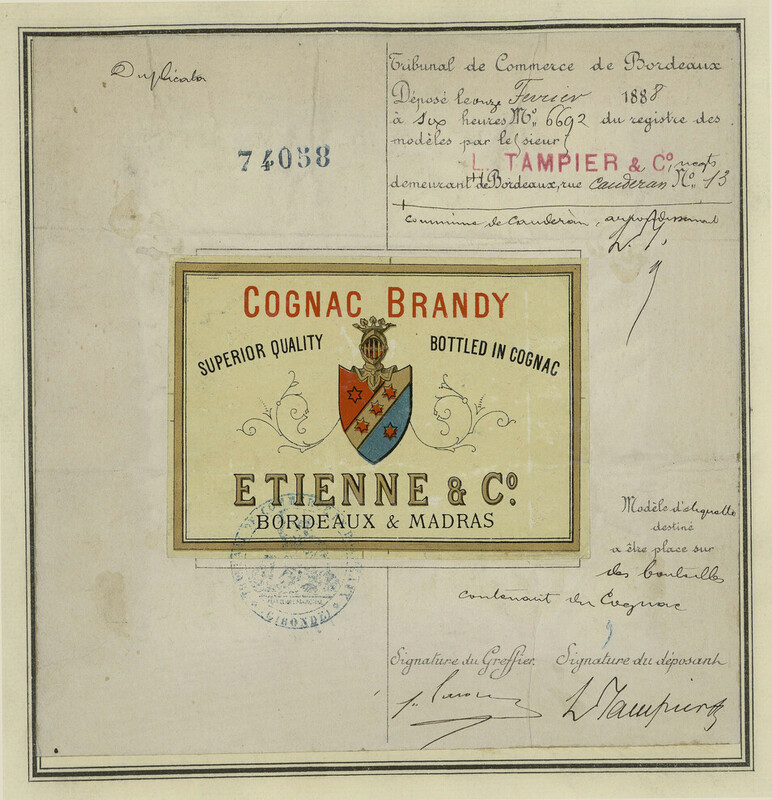 Duplicata
74058
Tribunal de Commerce de Bordeaux
Déposé le onze Fevrier 1888
à six heures Nº 6692 du registre des
modèles par le sieur
L. TAMPIER & Cº, negts
demeurant à Bordeaux, rue Cauderan Nº 13
Commune de Cauderan,
COGNAC BRANDY
SUPERIOR QUALITY
BOTTLED IN COGNAC
ETIENNE & Cº
BORDEAUX & MADRAS
TRIBUNAL DE COMMERCE DE BORDEAUX
(GIRONDE)
Modèle d'etiquette
destiné
a être place sur
des bouteilles
contenant du Cognac
Signature du Greffier.
Signature du déposant
L Tampier